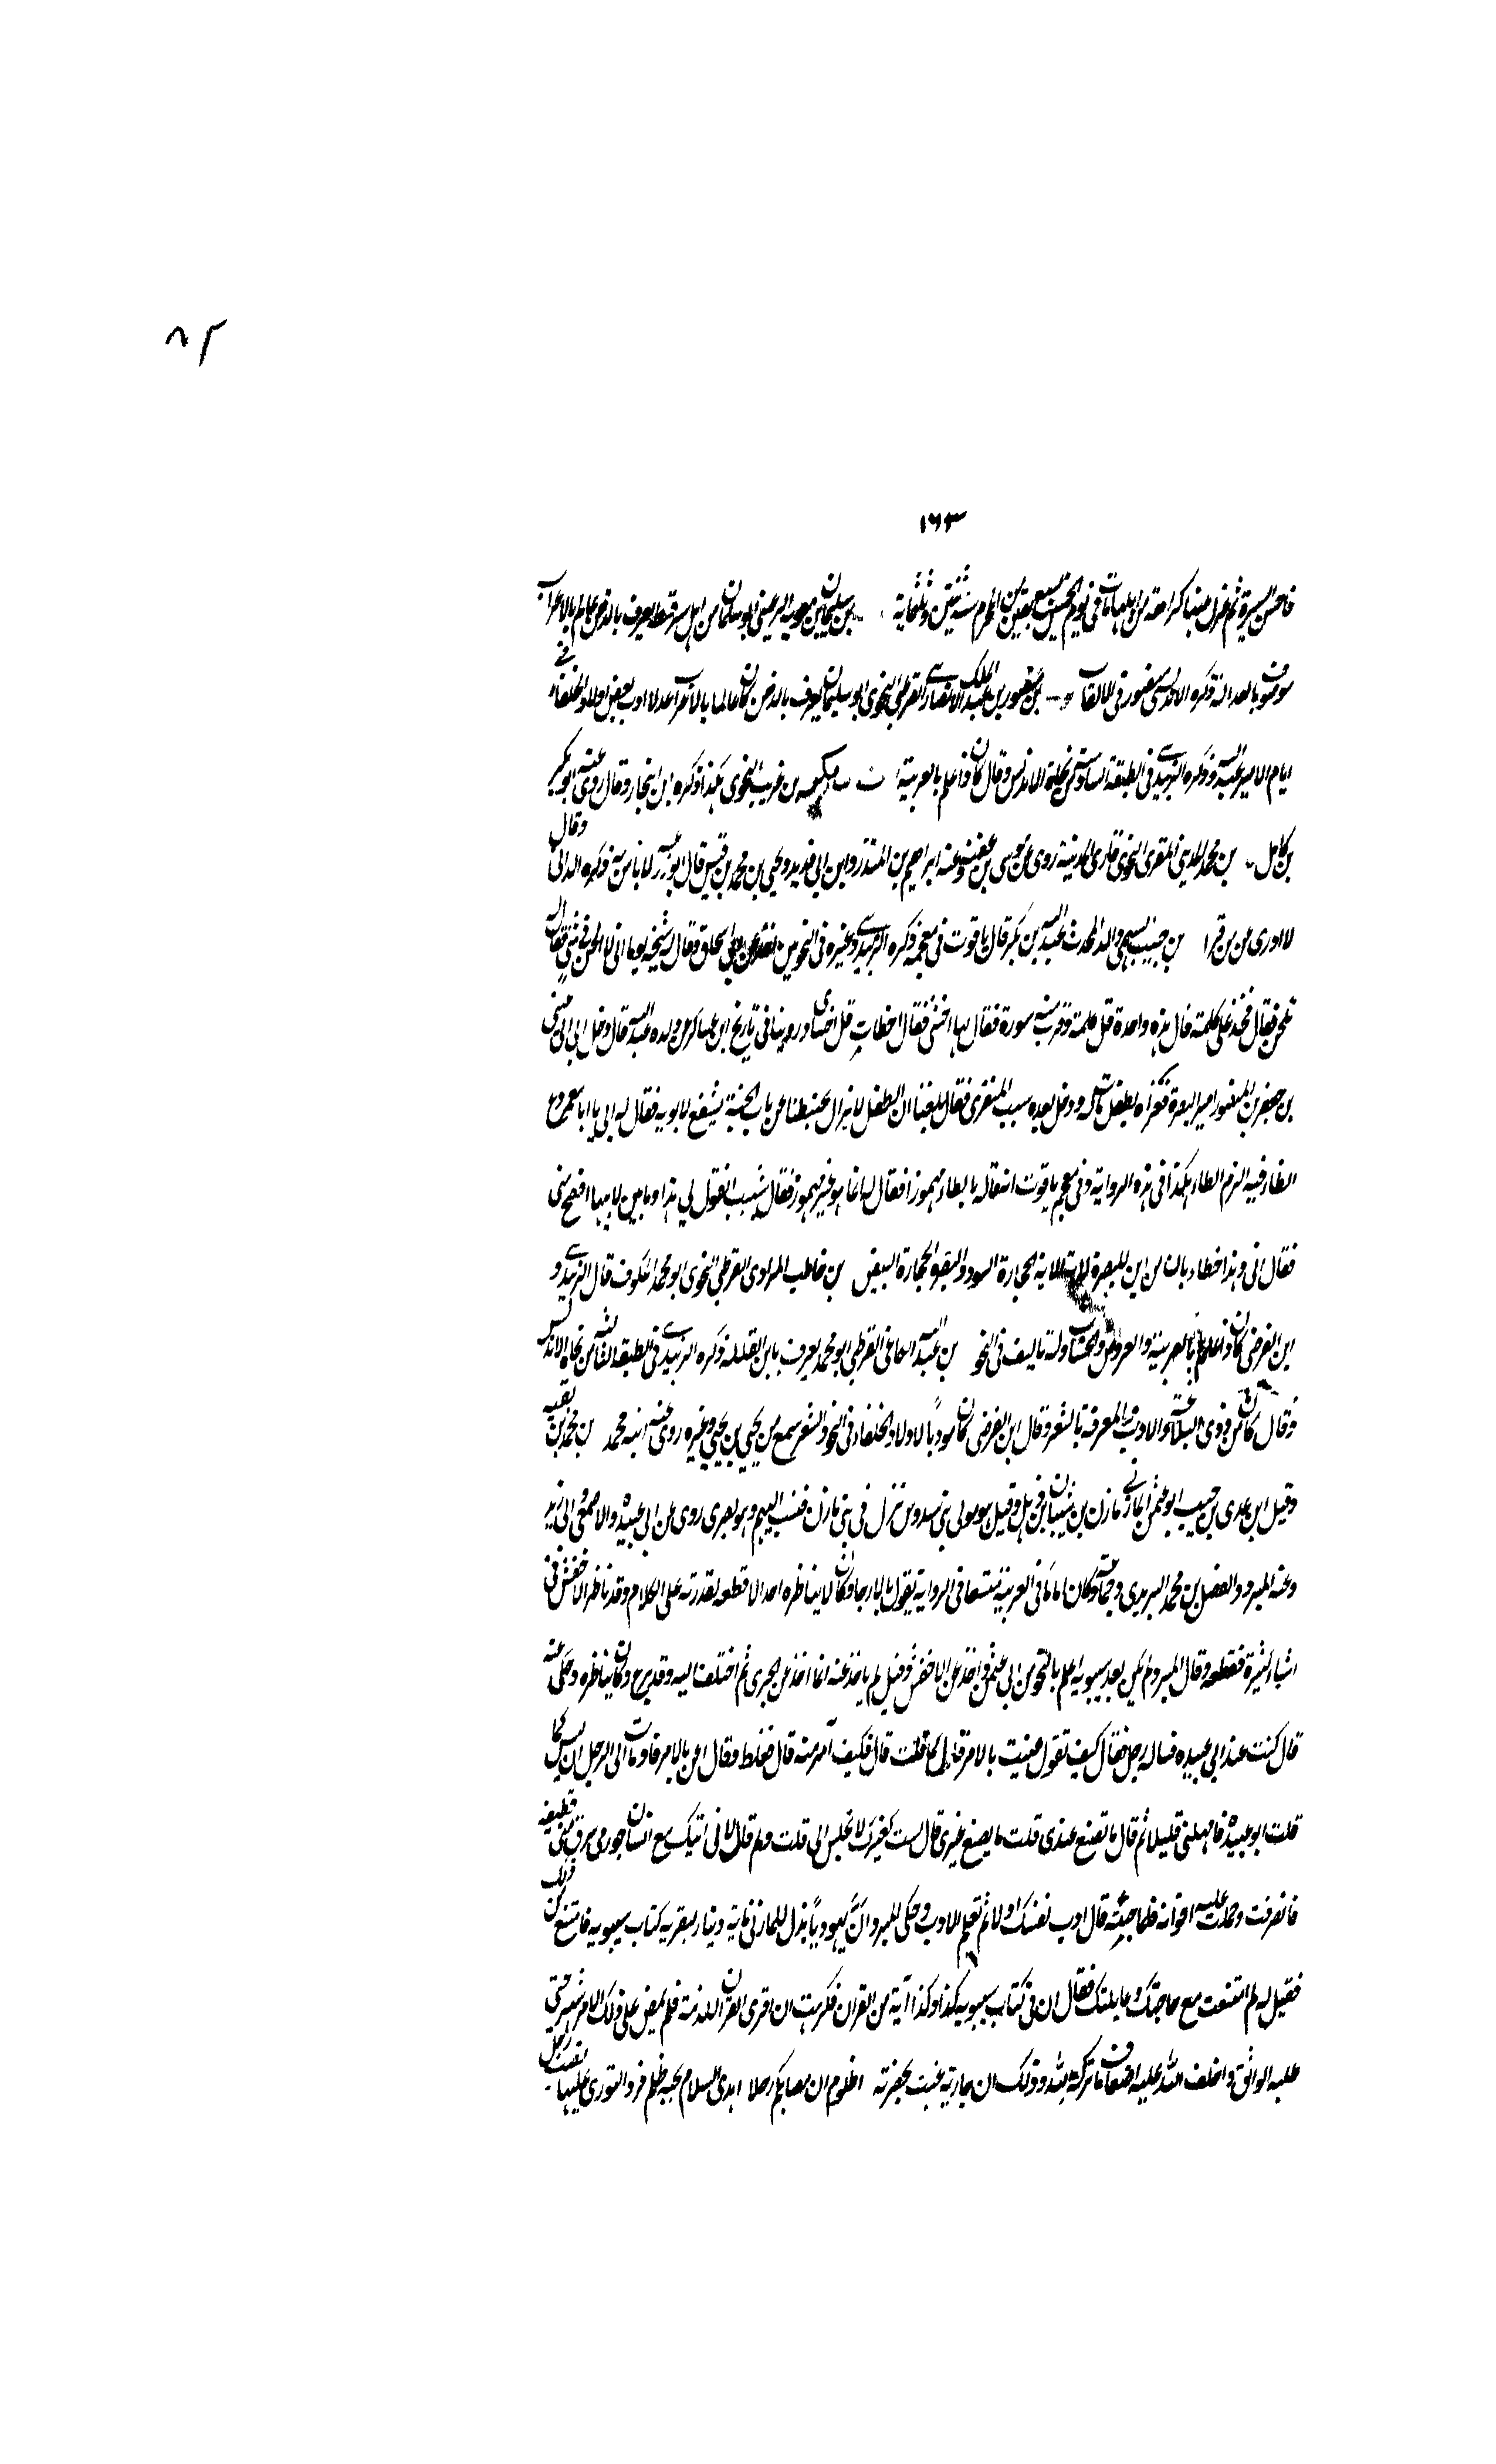 ٨٢
١٦٣
فاحسن السيرة ثم عزل منبا كراهته من اهلها مات في يوم الخميس لسبع بقين من المحرم سنة ثنتين وثلثماية بن سليمان بن معوية الرعيني ابو سليمان من اهل سرقسطة يعرف بالدخن عالم بالاعراب
موصوف بالعدالة ذكره الاندلسي منصور في الالقاب بن منصور بن عبد الملك الانصاري القرطبي النحوي ابو سليمان يعرف بالدخن كان عالما بالاعراب عدلا ادب بعض اولاد الخلفاء في
ايام الامير عبد الله وذكره الزبيدي في الطبقة السادسة من نحاة الاندلس وقال كان ذا علم بالعربية بن غريب النحوي هكذا ذكره ابن النجار وقال روى عنه ابو بكر
بن كامل بن محمد المديني المقرى النحوي قارى المدينة روى عن موسى بن عقبة وعنه ابراهيم بن المنذر وابن ابي فديك ويحيى بن محمد بن قيس قال ابو زرعة لا باس به ذكره الداني وقال
لا ادرى من بن قرا بن حبيب السهمي والد المحدث عبد الله بن بكر قال ياقوت في معجمه ذكره الزبيدي وغيره في النحويين اخذ عن ابي اسحاق وقال لشيخه يوما اني لا الحن في شى فقال له
تلحن فقال فخذ على كلمته قال هذه واحدة قل كلمة وقربت منه سنورة فقال لها اخشي فقال اخطات قل اخسأى وروينا في تاريخ ابن عساكر عن ولده عبد الله قال دخل ابى الى عيسى
بن جعفر بن المنصور امير البصرة فعزاه بطفل مات له ودخل بعده شبيب المنقرى فقال بلغنا ان الطفل لا يزال محبنطئا عن باب الجنة يشفع لابويه فقال له ابى يا ابا معمر دع
الظاء فيه الزم الطاء هكذا في هذه الرواية وفي معجم ياقوت انه قاله بالطاء مهموزا فقال له انما هو غير مهموز فقال شبيب اتقول لي هذا وما بين لابتيها افصح منى
فقال ابى وهذا خطاء بان من اين للبصرة لابة اللابة الحجارة السود والبصرة الحجارة البيض بن خاطب المرادى القرطبي النحوى ابو محمد المكفوف قال الزبيدي و
ابن الفرضى كان ذا علم بالعربية والعروض والحساب وله تاليف في النحو بن عبد الله الكلاعى القرطبى ابو محمد يعرف بابن القلة ذكره الزبيدي في الطبقة الثالثة من نحاة الاندلس
وقال كان من ذوى البلاغة والادب والمعرفة بالشعر وقال ابن الفرضى كان مودبا لاولاد الخلفاء في النحو والشعر سمع من يحيى بن يحيى وغيره روى عنه ابنه محمد بن محمد بن بقية
وقيل ابن عدى بن حبيب ابو عثمن المازني مازن بن شيبان بن ذهل وقيل مولى بنى سدوس نزل في بنى مازن فنسب اليهم وهو بصرى روى عن ابي عبيدة والاصمعى وابى زيد
وعنه المبرد والفضل بن محمد اليزيدى وجماعة وكان اماما في العربية متسعا في الرواية يقول بالارجاء وكان لا يناظره احد الا قطعه لقدرته على الكلام وقد ناظر الاخفش في
اشياء كثيرة فقطعه وقال المبرد لم يكن بعد سيبويه اعلم بالنحو من ابى عثمن واخذ عن الاخفش وقيل لم ياخذ عنه انما اخذ عن الجرمى ثم اختلف اليه وقد برع وكان يناظره وحكى عنه
قال كنت عند ابى عبيدة فساله رجل فقال كيف تقول عنيت بالامر قال كما قلت قال فكيف آمر منه قال فغلط وقال اعن بالامر فاومات الى الرجل ان ليس كما
قلت ابو عبيدة فامهلني قليلا ثم قال ما تصنع عندى قلت ما يصنع غيرى قال لست كغيرك لا تجلس الى قلت ولم قال لانى رايتك مع انسان خوزى سرق منى قطيفة
فانصرفت وتحملت عليه اخوانه فلما جئته قال ادب نفسك اولا ثم تعلم الادب وحكى المبرد ان يهوديا بذل للمازنى ماية دينار ليقريه كتاب سيبويه فامتنع من ذلك
فقيل له لم امتنعت مع حاجتك وعايلتك فقال ان في كتاب سيبويه كذا وكذا آية من القران فكرهت ان اقرى القران للذمة فلم يمض على ذلك الا مديدة حتى
طلبه الواثق واخلف الله عليه اضعاف ما تركه لله وذلك ان جارية غنت بحضرته اظلوم ان مصابكم رجلا اهدى السلام تحية ظلم فرد التوزى عليها نصب رجل